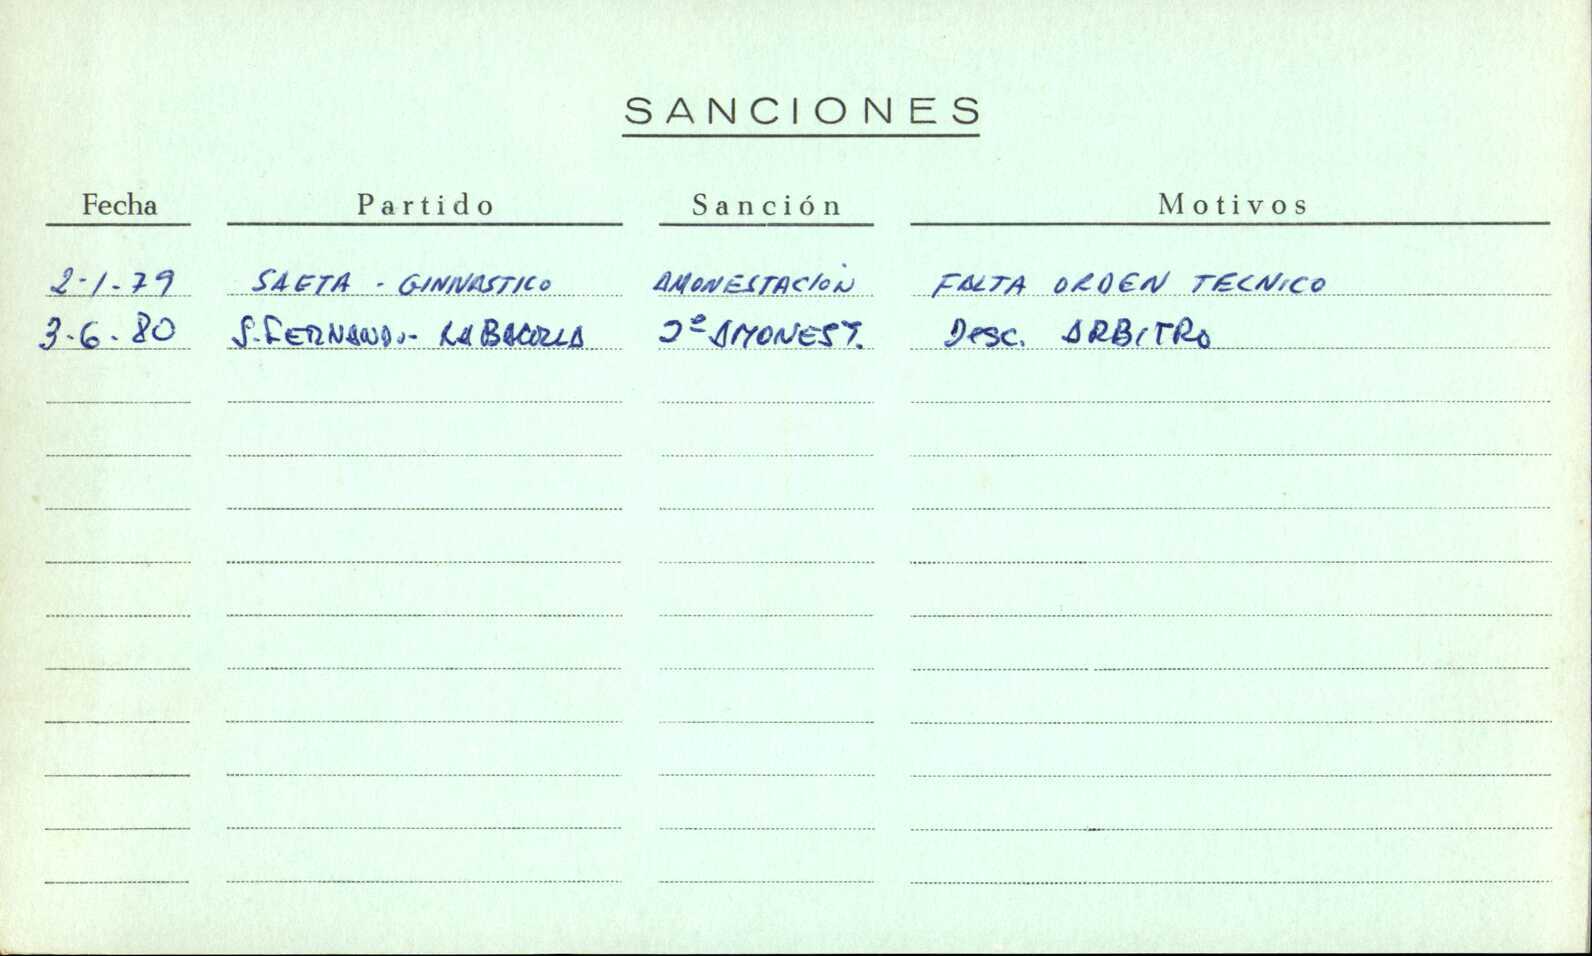 SANCIONES
Fecha Partido Sanción Motivos
2-1-79 SAETA - GINNASTICO AMONESTACIÓN FALTA ORDEN TECNICO
3-6-80 S. FERNANDO - LABACOLLA 2ª AMONEST. Desc. ARBITRO